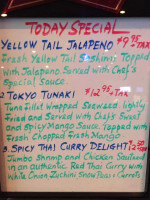 TODAY SPECIAL
YELLOW TAIL JALAPENO $9.95+TAX
Fresh Yellow Tail Sashimi Topped
With Jalapeno Served with Chef's
Special Sauce.
2 TOKYO TUNAKI $12.95+TAX
Tuna fillet Wrapped Seaweed lightly
Fried and Served with Chef's Sweet
and Spicy Mango Sauce, Topped with
Fresh Chopped Fresh Mango
3. SPICY THAI CURRY DELIGHT
Jumbo Shrimp and Chicken Sauteed
in an Authentic Red Thai Curry with
White Onion, Zuchini, Snow Peas & Carrots